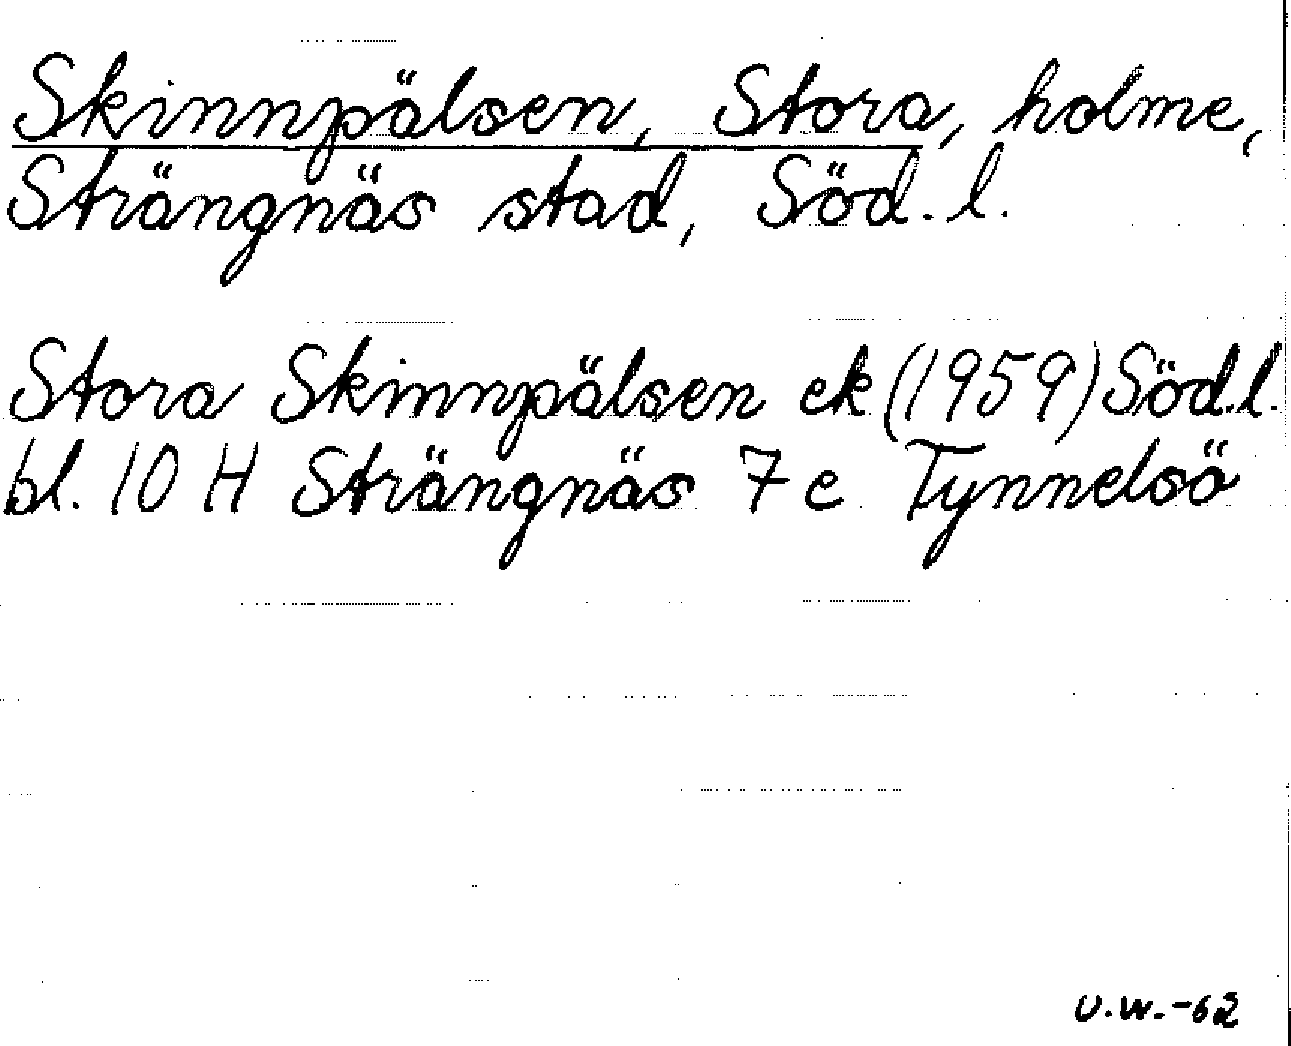 Skinnpälsen, Stora, holme,
Strängnäs stad, Söd. l.
Stora Skinnpälsen ek (1959) Söd.l.
bl. 10 H Strängnäs 7 e Tynnelsö
U.W.-62